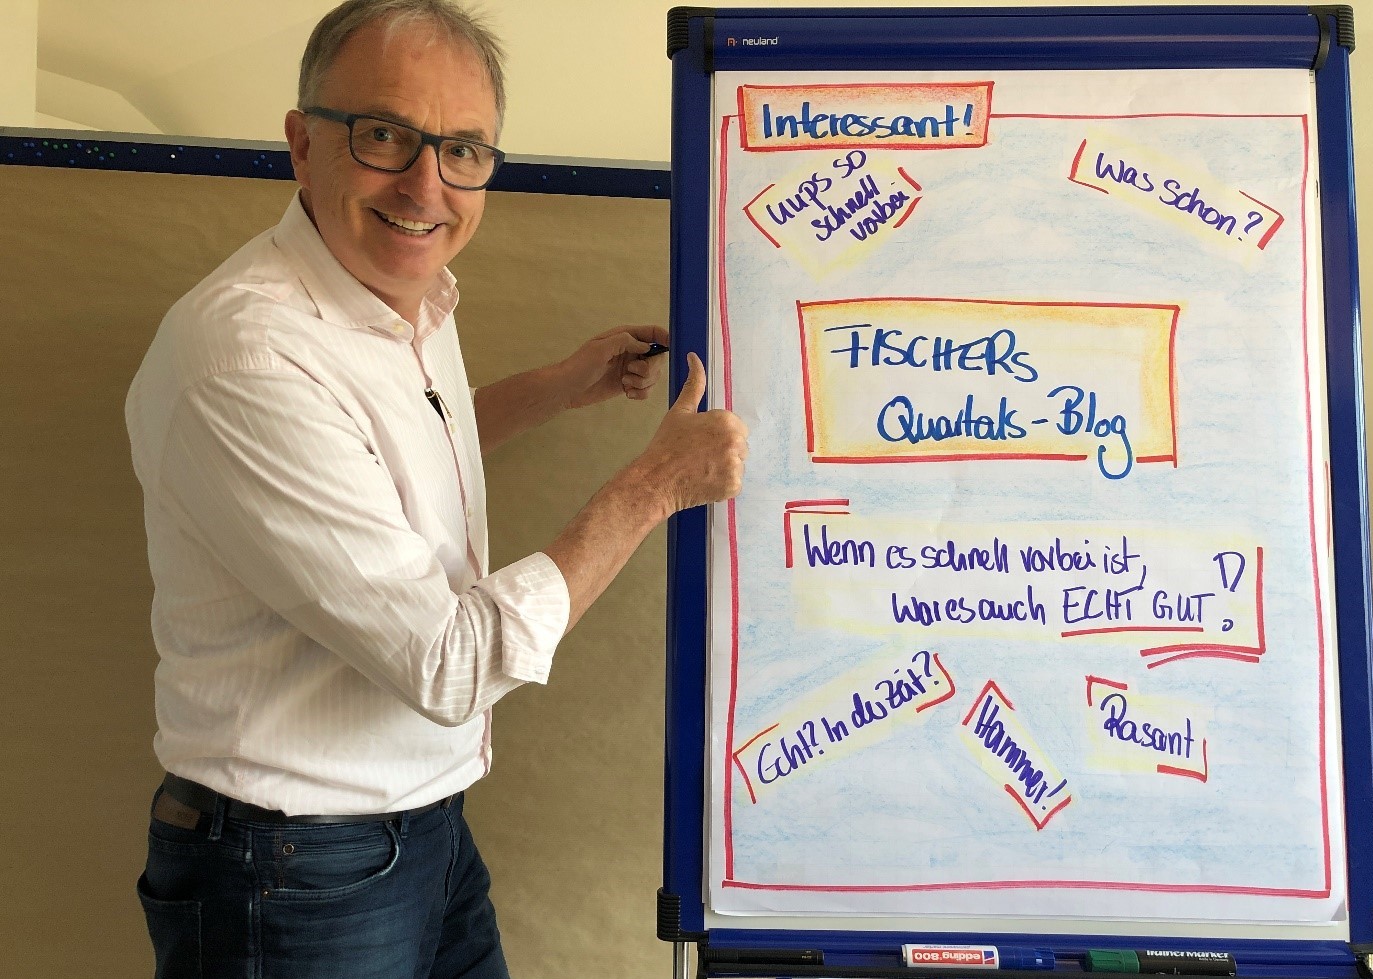 neuland
Interessant!
uups so
schnell
vorbei
Was schon?
FISCHERs
Quartals-Blog
Wenn es schnell vorbei ist,
war es auch ECHT GUT!
Echt? In du Zeit?
Hammer!
Rasant
edding 800
TrainerMarker